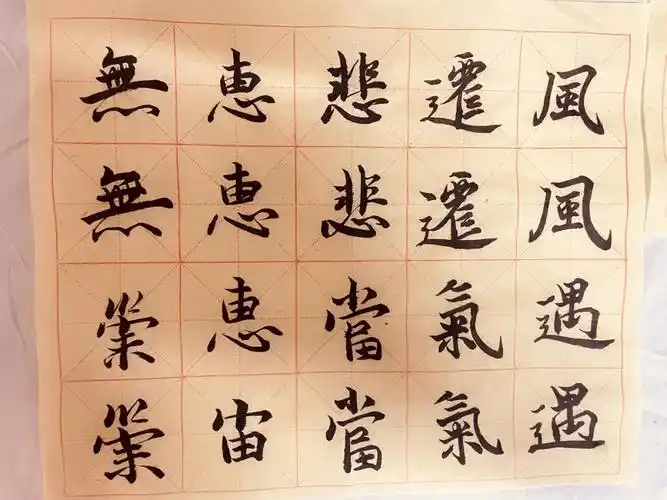 風風遇遇
遷遷氣氣
悲悲當當
恵恵恵宙
無無